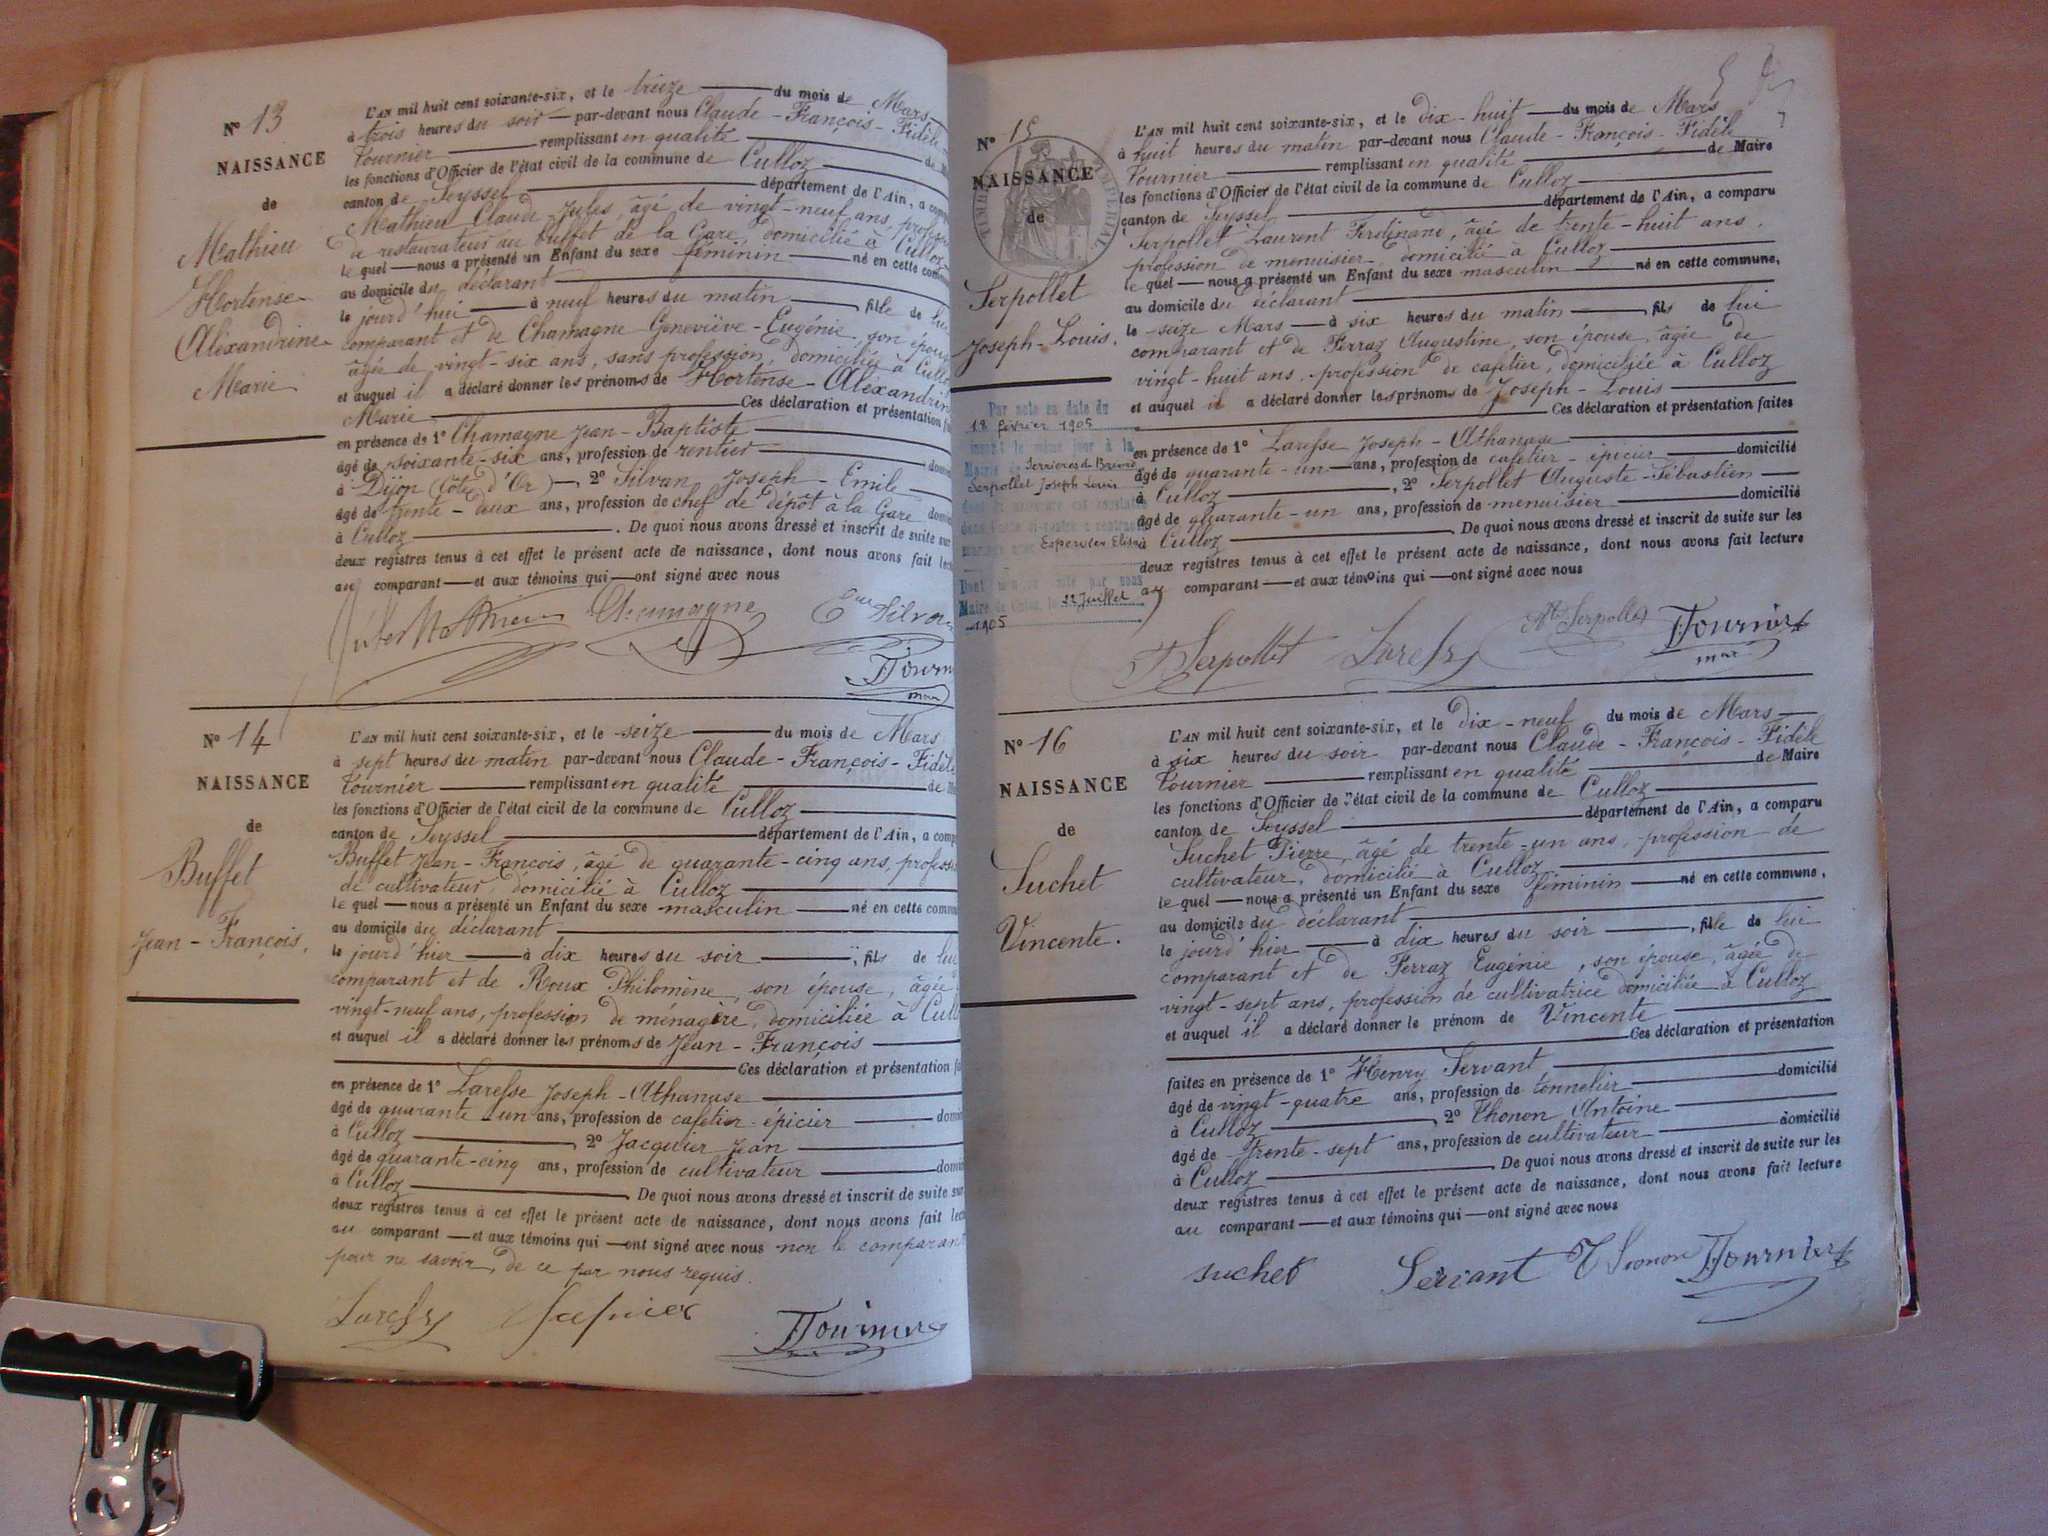 N° 13
NAISSANCE
de
Mathieu
Hortense
Alexandrine
Marie
L'AN mil huit cent soixante-six, et le treize du mois de Mars
à trois heures du soir par-devant nous Claude-François-Fidèle
Tournier remplissant en qualité de
les fonctions d'Officier de l'état civil de la commune de Culloz
canton de Seyssel département de l'Ain, a
Mathieu Claude-Jules, âgé de vingt-neuf ans,
de restaurateur au buffet de la Gare, domicilié à Culloz
le quel nous a présenté un Enfant du sexe féminin né en cette
au domicile du déclarant
le jourd'hui à neuf heures du matin, fille de lui
comparant et de Chamagne Geneviève-Eugénie, son
âgée de vingt-six ans, sans profession, domiciliée à
et auquel il a déclaré donner les prénoms de Hortense-Alexandrine
Marie Ces déclaration et présentation
en présence de 1° Chamagne Jean-Baptiste
âgé de soixante-six ans, profession de rentier
à Dijon (Côte d'Or), 2° Silvan Joseph-Emile
âgé de trente-deux ans, profession de chef de dépôt à la Gare
à Culloz. De quoi nous avons dressé et inscrit de suite sur
deux registres tenus à cet effet le présent acte de naissance, dont nous avons fait
au comparant et aux témoins qui ont signé avec nous
Chamagne
N° 14
NAISSANCE
de
Buffet
Jean-François.
L'AN mil huit cent soixante-six, et le seize du mois de Mars
à sept heures du matin par-devant nous Claude-François-Fidèle
Tournier remplissant en qualité de
les fonctions d'Officier de l'état civil de la commune de Culloz
canton de Seyssel département de l'Ain, a
Buffet Jean-François, âgé de quarante-cinq ans,
de cultivateur, domicilié à Culloz
le quel nous a présenté un Enfant du sexe masculin né en cette
au domicile du déclarant
le jourd'hier à dix heures du soir, fils de lui
comparant et de Roux Philomène, son épouse, âgée
vingt-neuf ans, profession de ménagère, domiciliée à
et auquel il a déclaré donner les prénoms de Jean-François
Ces déclaration et présentation
en présence de 1° Laresse Joseph-Athanase
âgé de quarante-un ans, profession de cafetier-épicier
à Culloz, 2° Jacquier Jean
âgé de quarante-cinq ans, profession de cultivateur
à Culloz. De quoi nous avons dressé et inscrit de suite sur
deux registres tenus à cet effet le présent acte de naissance, dont nous avons fait
au comparant et aux témoins qui ont signé avec nous non le comparant
pour ne savoir, de ce par nous requis.
Tournier
N° 15
NAISSANCE
de
TIMBRE IMPÉRIAL
Serpollet
Joseph-Louis.
Par acte en date du
18 février 1905
inscrit le même jour à la
Mairie de Serrières de Briord
Serpollet Joseph Louis
22 Juillet
1905
L'AN mil huit cent soixante-six, et le dix-huit du mois de Mars
à huit heures du matin par-devant nous Claude-François-Fidèle
Tournier remplissant en qualité de Maire
les fonctions d'Officier de l'état civil de la commune de Culloz
canton de Seyssel département de l'Ain, a comparu
Serpollet Laurent Ferdinand, âgé de trente-huit ans,
profession de menuisier, domicilié à Culloz
le quel nous a présenté un Enfant du sexe masculin né en cette commune,
au domicile du déclarant
le seize Mars à six heures du matin, fils de lui
comparant et de Ferraz Augustine, son épouse, âgée de
vingt-huit ans, profession de cafetier, domiciliée à Culloz
et auquel il a déclaré donner les prénoms de Joseph-Louis
Ces déclaration et présentation faites
en présence de 1° Laresse Joseph-Athanase
âgé de quarante-un ans, profession de cafetier-épicier domicilié
à Culloz, 2° Serpollet Auguste-Sébastien
âgé de quarante-un ans, profession de menuisier domicilié
à Culloz. De quoi nous avons dressé et inscrit de suite sur les
deux registres tenus à cet effet le présent acte de naissance, dont nous avons fait lecture
au comparant et aux témoins qui ont signé avec nous
Serpollet Serpollet Tournier
N° 16
NAISSANCE
de
Suchet
Vincente.
L'AN mil huit cent soixante-six, et le dix-neuf du mois de Mars
à six heures du soir par-devant nous Claude-François-Fidèle
Tournier remplissant en qualité de Maire
les fonctions d'Officier de l'état civil de la commune de Culloz
canton de Seyssel département de l'Ain, a comparu
Suchet Pierre, âgé de trente-un ans, profession de
cultivateur, domicilié à Culloz
le quel nous a présenté un Enfant du sexe féminin né en cette commune,
au domicile du déclarant
le jourd'hier à dix heures du soir, fille de lui
comparant et de Ferraz Eugénie, son épouse, âgée de
vingt-sept ans, profession de cultivatrice domiciliée à Culloz
et auquel il a déclaré donner le prénom de Vincente
Ces déclaration et présentation
faites en présence de 1° Henry Servant
âgé de vingt-quatre ans, profession de tonnelier domicilié
à Culloz 2° Thonon Antoine
âgé de trente-sept ans, profession de cultivateur domicilié
à Culloz. De quoi nous avons dressé et inscrit de suite sur les
deux registres tenus à cet effet le présent acte de naissance, dont nous avons fait lecture
au comparant et aux témoins qui ont signé avec nous
suchet Servant Tournier